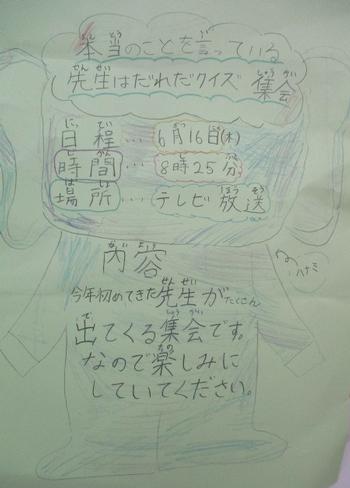 本当のことを言っている
先生はだれだクイズ 集会
日程…6月16日(木)
時間…8時25分
場所…テレビ放送
内容
今年初めてきた先生がたくさん
出てくる集会です。
なので楽しみに
していてください。
ハナミ